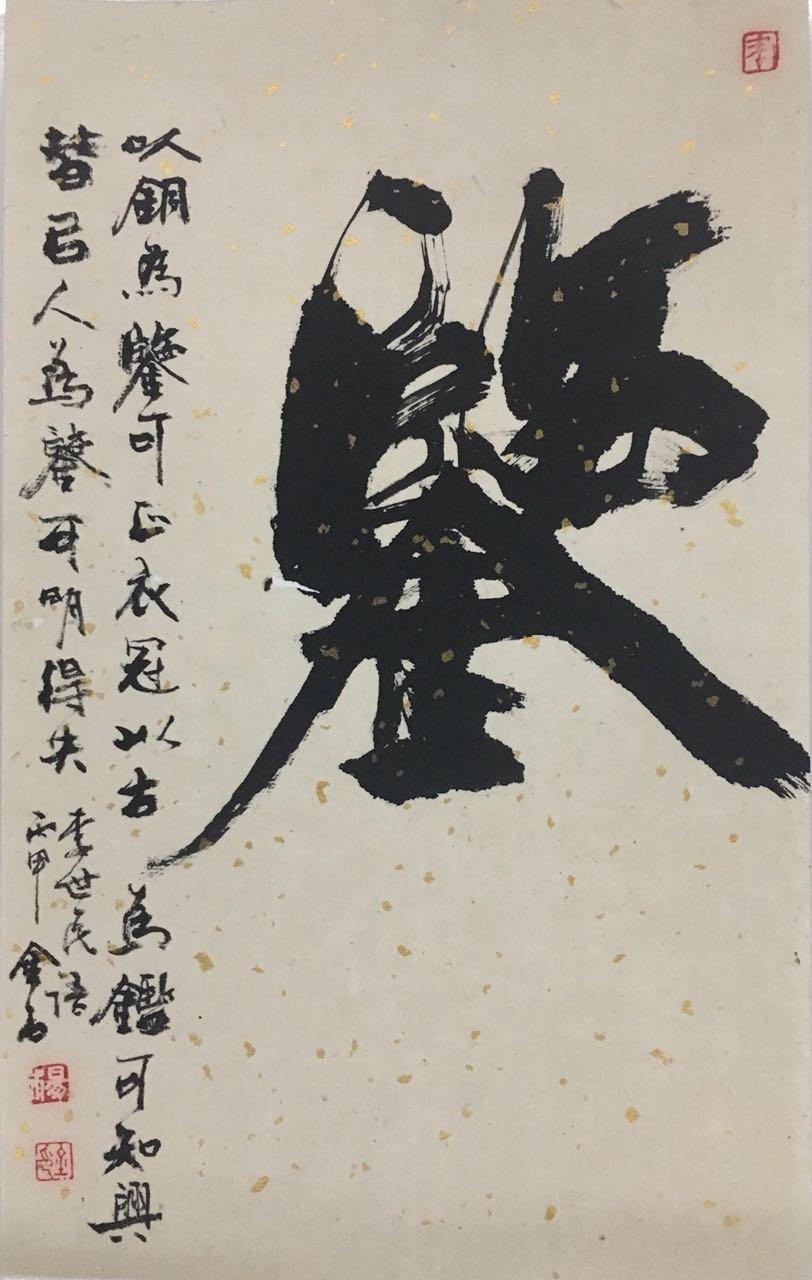 鑒
以銅為鑒可正衣冠以古為鑑可知興
替㠯人為鑒可明得失
李世民語
丙申
楊